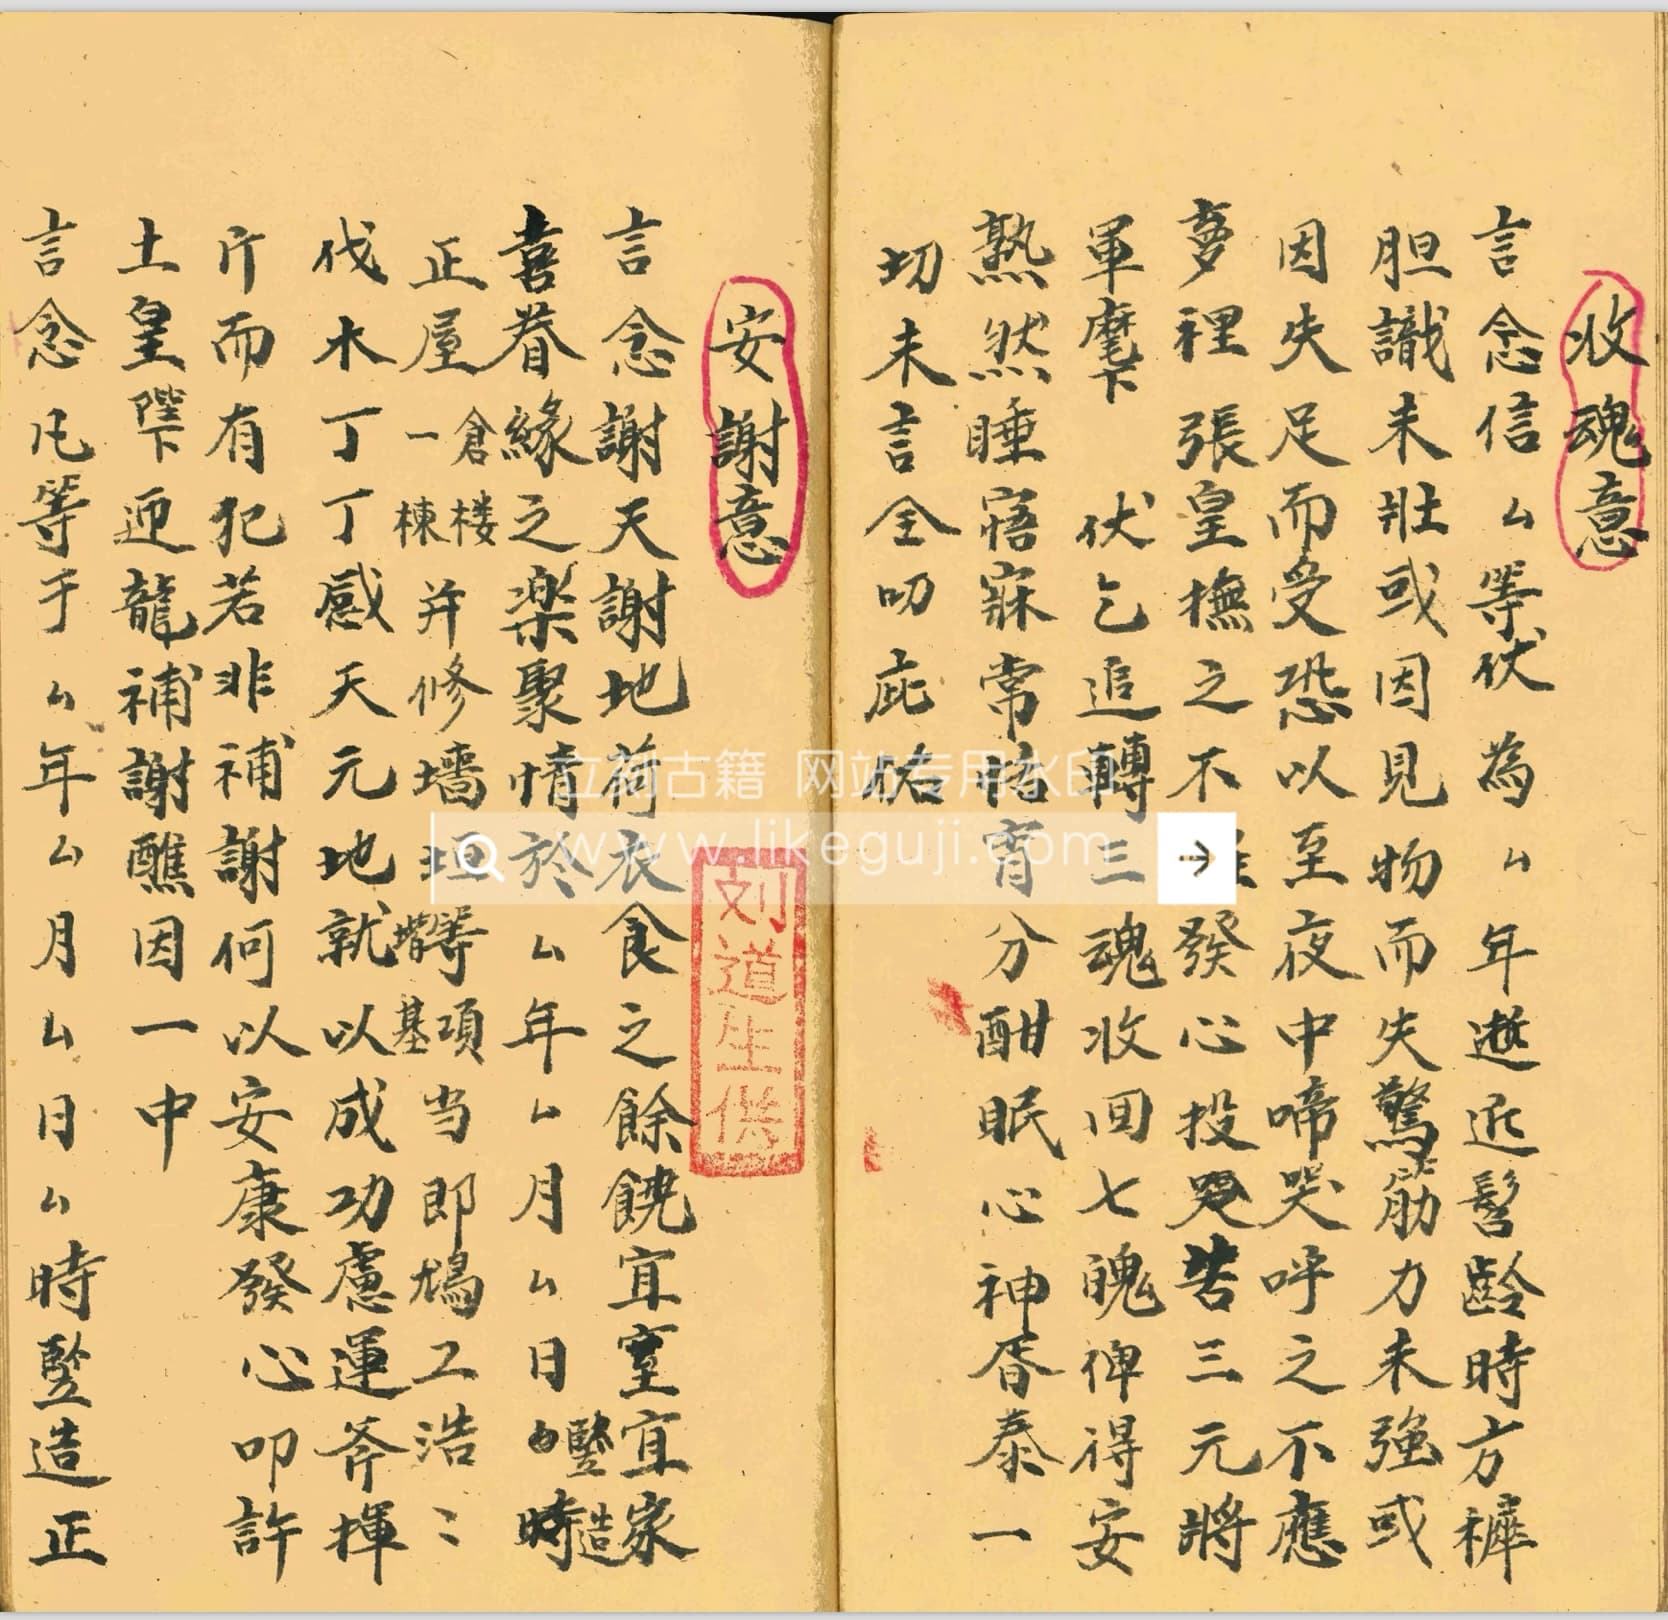 收魂意
言念信厶等伏為厶厶年逝近髫齡時方裤
胆識未壯或因見物而失驚筋力未強或
因失足而受恐以至夜中啼哭呼之不應
夢裡張皇撫之不 發心投哭苦三元將
軍麾下 伏乞追轉三魂收回七魄俾得安
熟然睡寤寐常恬宵分酣眠心神脣泰一
切未言全叨庇佑
安謝意
言念謝天謝地荷衣食之餘饒宜室宜家
喜眷緣之楽聚情於厶年厶月厶日由時豎造
正屋一棟倉楼并修墻垣等項堦基当即鳩工浩〻
伐木丁丁感天元地就以成功慮運斧揮
斤而有犯若非補謝何以安康發心叩許
土皇陛下迎龍補謝醮因一中
言念凡等于厶年厶月厶日厶時豎造正
刘道生供
立刻古籍 网站专用水印
www.likeguji.com